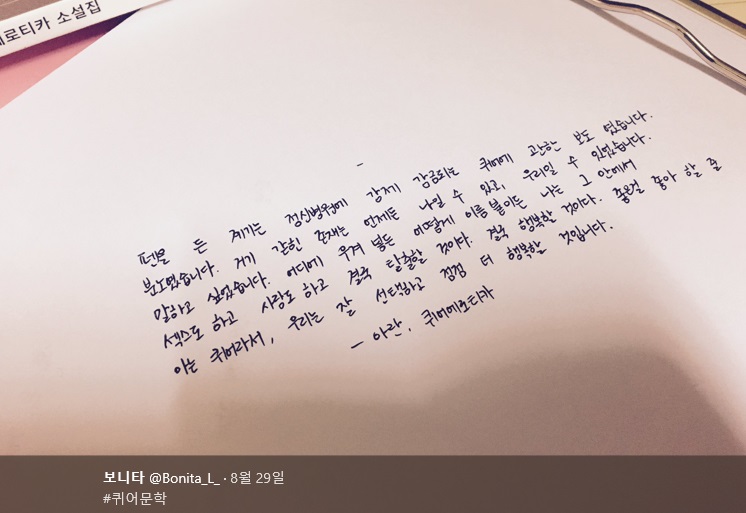 로티카 소설집
펜을 든 계기는 정신병원에 강제 감금되는 퀴어에 관한 보도 였습니다.
분노였습니다. 거기 갇힌 존재는 언제든 나일 수 있고, 우리일 수 있었습니다.
말하고 싶었습니다. 어디에 우겨 넣든 어떻게 이름 붙이든 나는 그 안에서
섹스도 하고 사랑도 하고 결국 탈출할 것이다. 결국 행복할 것이다. 좋은걸 좋아 할 줄
아는 퀴어라서, 우리는 잘 선택하고 점점 더 행복할 것입니다.
- 아란, 퀴어에로티카
보니타 @Bonita_L_ · 8월 29일
#퀴어문학